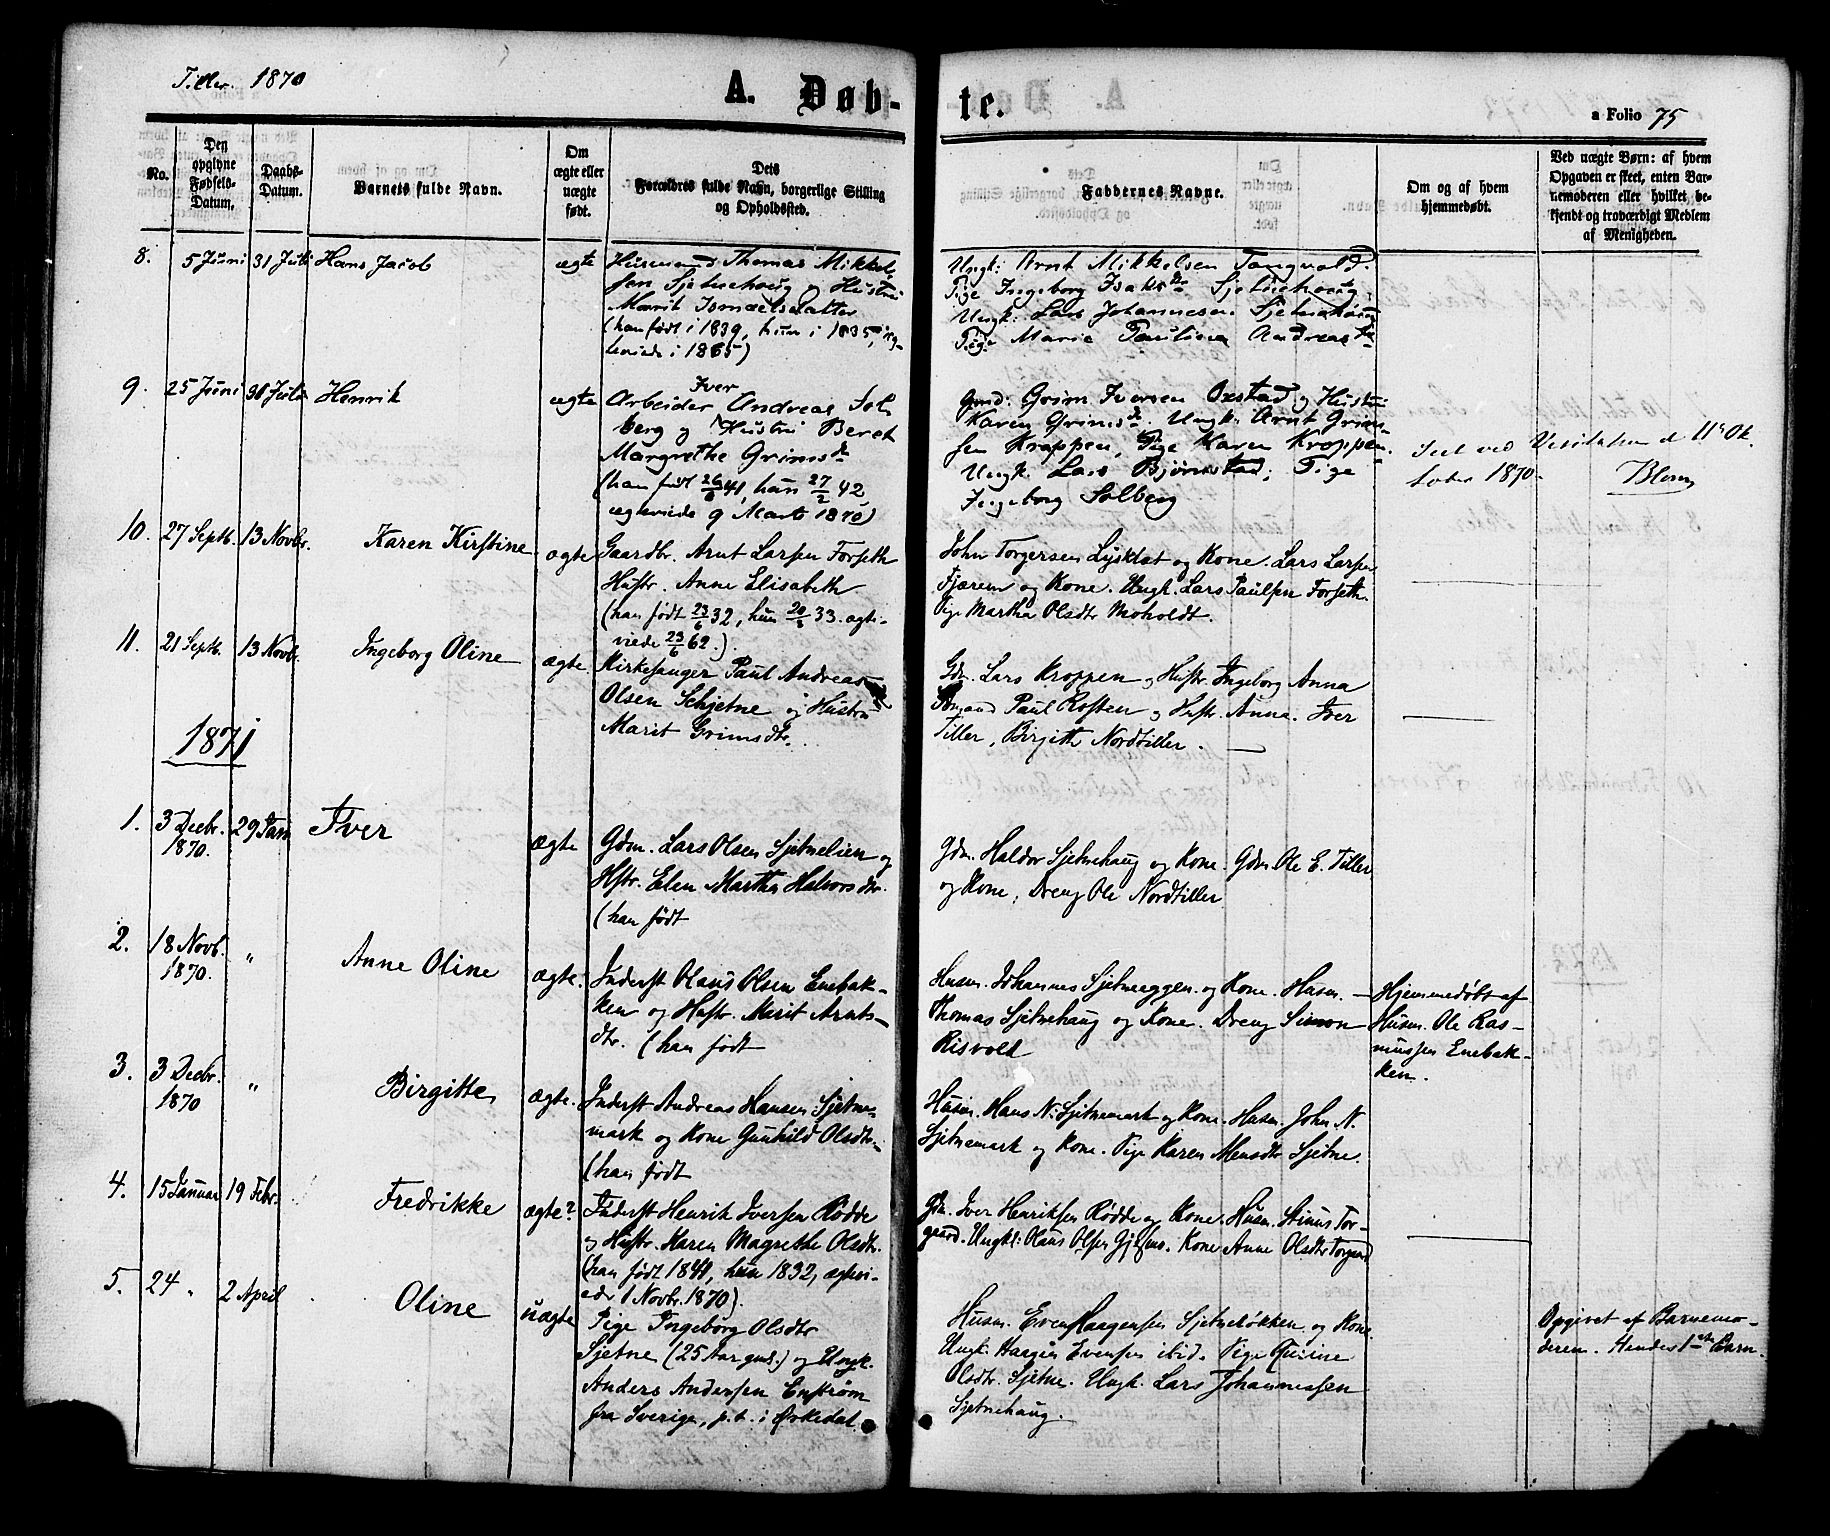 Tiller. 1870
A. Døb-
te.
a Folio 75
No.
Den opgivne Fødsels-Datum.
Daabs-Datum.
Barnets fulde Navn.
Om ægte eller uægte født.
Dets Forældres fulde Navn, borgerlige Stilling og Opholdssted.
Faddernes Navne.
Om og af hvem hjemmedøbt.
Ved uægte Børn: af hvem Opgaven er skeet, enten Barnemoderen eller hvilket bekjendt og troværdigt Medlem af Menigheden.
8. 5 Juni 31 Juli Hans Jacob ægte
Husmand Thomas Mikkel-
sen Sjetnehaug og Hustru
Marit Ismaelsdatter
(han født i 1839, hun i 1835, æg-
teviede i 1865)
Ungk: Arnt Mikkelsen Tangvald.
Pige Ingeborg Isaksdr Sjetnehaug,
Ungk: Lars Johannesen Sjetnehaug
Pige Marie Pauline Andreasdr
9. 25 Juni 30 Juli Henrik ægte
Iver
Arbeider Andreas Sol-
berg og Hustru Beret
Margrethe Grimsdr
(han født 26/6 41, hun 27/2 42,
ægteviede 9 Marts 1870)
Gmd: Grim Iversen Oxstad og Hustru
Karen Grimsdr. Ungk: Arnt Grim-
sen Kroppen, Pige Karen Kroppen.
Ungk. Lars Bjørnstad; Pige
Ingeborg Solberg
Seet ved Visitatsen d. 11te Ok-
tober 1870.
Blom
10. 27 Septb. 13 Novbr. Karen Kirstine ægte
Gaardbr. Arnt Larsen Forseth
Hustr. Anne Elisabeth
(han født 23/6 32, hun 20/3 33. ægte-
viede 23/6 62.)
John Torgersen Lysklæt og Kone. Lars Larsen
Fjærem og Kone. Ungk. Lars Paulsen Forseth.
Pige Martha Olsdtr Moholdt.
11. 21 Septb. 13 Novb. Ingeborg Oline ægte
Kirkesanger Paul Andreas
Olsen Schjetne og Hustru
Marit Grimsdtr.
Gdm. Lars Kroppen og Hustr. Ingeborg Anna
Paul Rosten og Hustr. Anna. Iver
Tiller, Birgitte Nordtiller.
1871
1. 3 Decbr. 1870. 29 Jan Iver ægte
Gdm. Lars Olsen Sjetnelien og
Hstr. Elen Martha Halvorsdtr.
(han født
Gdm. Haldor Sjetnehaug og Kone. Gdm. Ole E. Tiller
og Kone, Dreng Ole Nordtiller
2. 18 Novb. 1870. " Anne Oline ægte.
Inderst Olaus Olsen Enebak-
ken og Hustr. Marit Arnts-
dtr. (han født
Husm. Johannes Sjetneeggen og Kone. Husm.
Thomas Sjetnehaug og Kone. Dreng Simon
Risvold
Hjemmedøbt af
Husm. Ole Ras-
mussen Enebak-
ken.
3. 3 Decbr. 1870 " Birgitte ægte.
Inderst Andreas Hansen Sjetne-
mark og Kone Gunhild Olsdtr.
(han født
Husm. Hans N. Sjetnemark og Kone. Husm. John N.
Sjetnemark og Kone. Pige Karen Monsdtr Sjetne.
4. 15 Januar 19 Febr. Fredrikke ægte?
Inderst Henrik Iversen Rødde
og Hustr. Karen Magrethe Olsdtr.
(han født 1841, hun 1832, ægtevi-
ede 1 Novbr. 1870).
Gdm. Iver Henriksen Rødde og Kone. Husm. Stinus Tor-
gaard. Ungkl: Olaus Olsen Kone Anne Olsdtr Torgaard
5. 24 " 2 April Oline uægte
Pige Ingeborg Olsdtr
Sjetne (25 Aar gml.) og Ungk.
Anders Andersen Enstrøm
fra Sverige, p.t. i Ørkedal.
Husm. Even Haagensen Sjetneløkken og Kone.
Ungk. Haagen Evensen ibid. Pige
Olsdtr Sjetne. Ungk. Lars Johannessen
Sjetnehaug.
Opgivet af Barnemo-
deren. Hendes 1ste Barn.